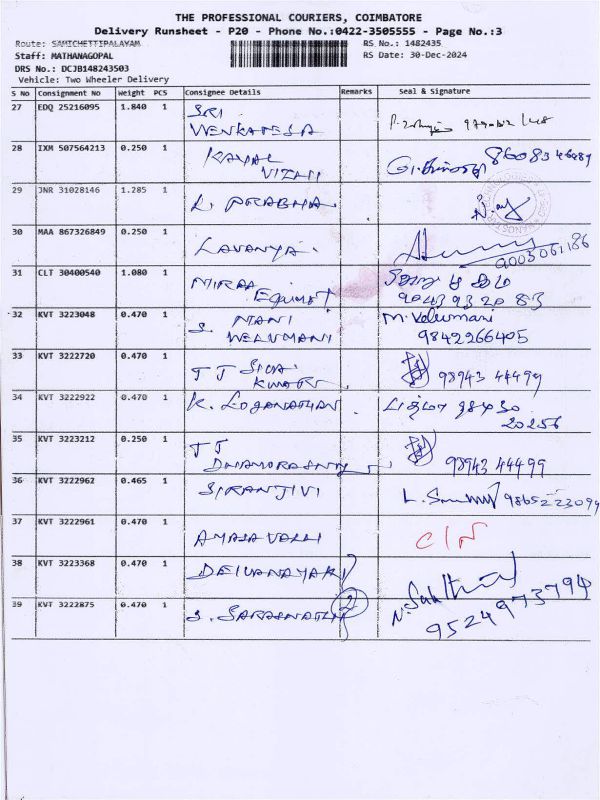 THE PROFESSIONAL COURIERS, COIMBATORE
Delivery Runsheet - P20 - Phone No.:0422-3505555 - Page No.:3
Route: SAMICHETTIPALAYAM RS No.: 1482435
Staff: MATHANAGOPAL RS Date: 30-Dec-2024
DRS No.: DCJB148243503
Vehicle: Two Wheeler Delivery
S No Consignment No Weight PCS Consignee Details Remarks Seal & Signature
27 EDQ 25216095 1.840 1 SRI
VENKATESA
28 IXM 507564213 0.250 1 KAYAL
VIZHI
29 JNR 31028146 1.285 1 K. PRABHA
30 MAA 867326849 0.250 1 LAVANYA.
9003061186
31 CLT 30400540 1.080 1 MIRAA
Equipmet
90439 320 83
32 KVT 3223048 0.470 1 S. MANI M. Velumani
VELUMANI 9842266405
33 KVT 3222720 0.470 1 TT SIVA
KUMAR 98943 44499
34 KVT 3222922 0.470 1 K. LOGANATHAN
20256
35 KVT 3223212 0.250 1 TT
98943 44499
36 KVT 3222962 0.465 1 SIRANJIVI 9865223094
37 KVT 3222961 0.470 1 AMALAVALLI C/N
38 KVT 3223368 0.470 1 DEIVANAYAKI
39 KVT 3222875 0.470 1 2
9524973794